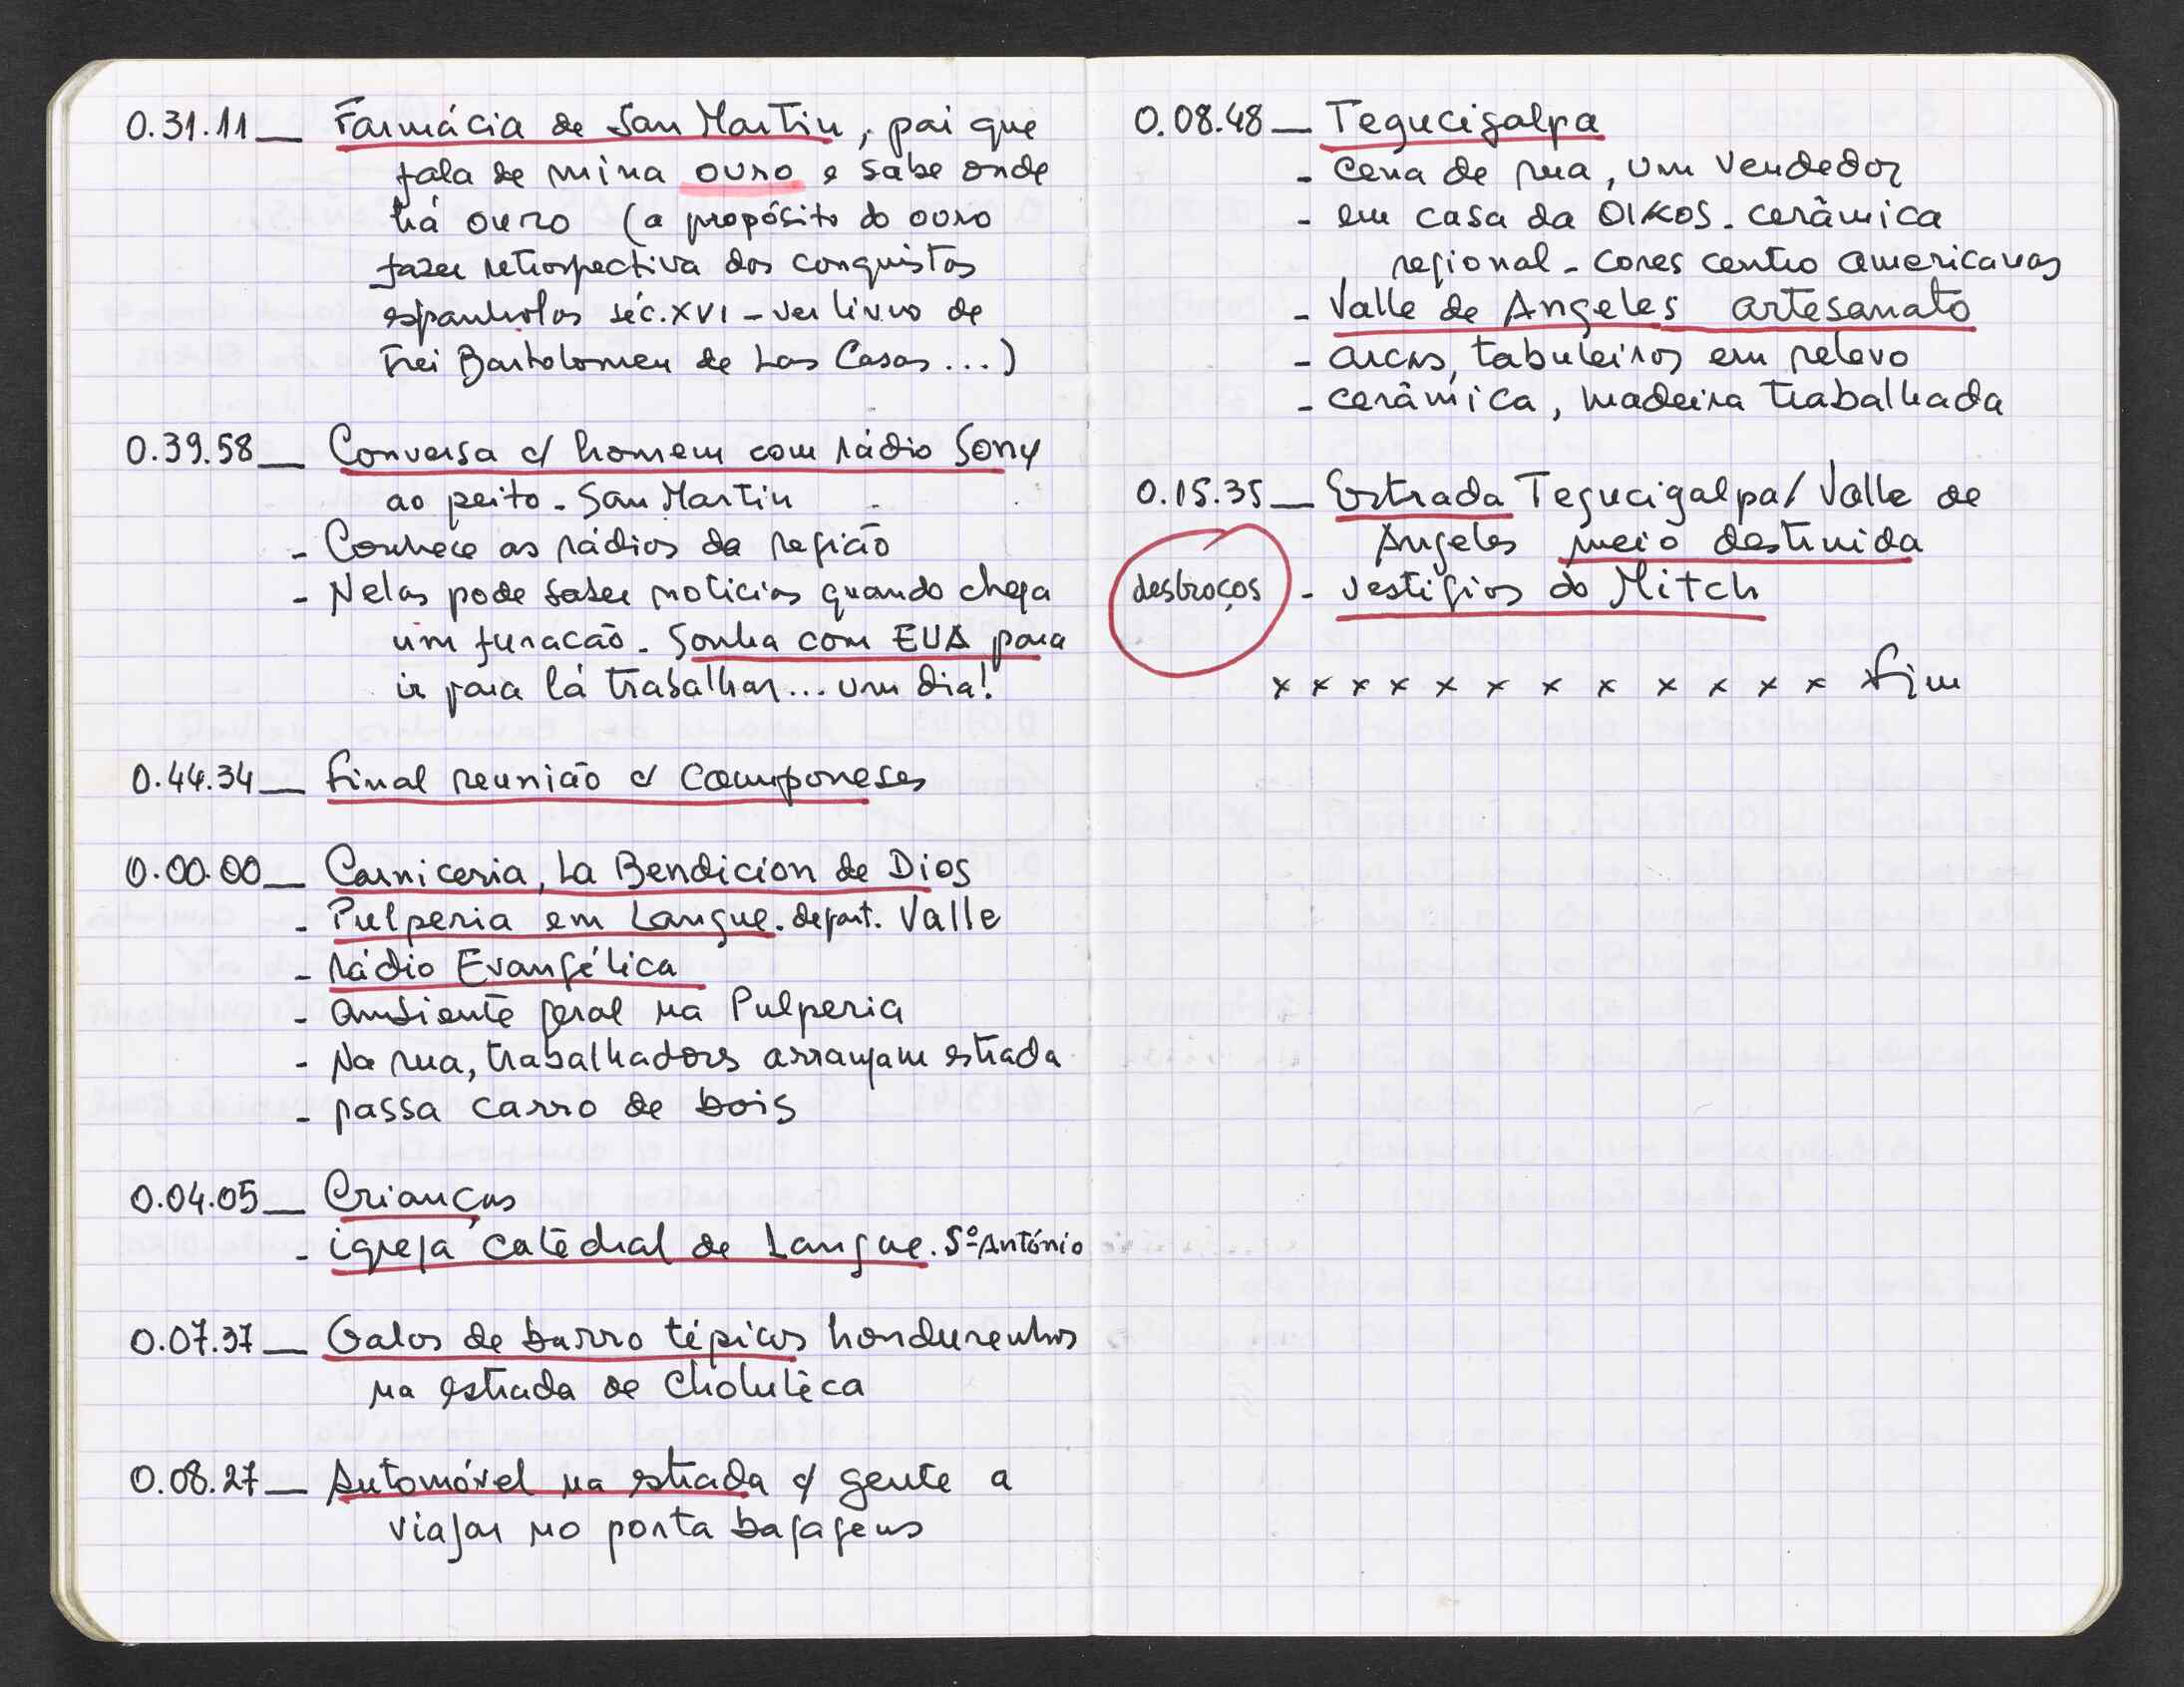 0.31.11 — Farmácia de San Martin, pai que
fala de mina ouro e sabe onde
há ouro (a propósito do ouro
fazer retrospectiva dos conquistas
espanholas séc. XVI - ver livro de
Frei Bartolomeu de Las Casas ...)
0.39.58 — Conversa c/ homem com rádio Sony
ao peito - San Martin
- Conhece as rádios da região
- Nelas pode saber noticias quando chega
um furacão - Sonha com EUA para
ir para lá trabalhar... um dia!
0.44.34 — Final reunião c/ camponeses
0.00.00 — Carniceria, La Bendicion de Dios
- Pulperia em Langue. depart. Valle
- rádio Evangélica
- ambiente geral na Pulperia
- Na rua, trabalhadores arranjam estrada
- passa carro de bois
0.04.05 — Crianças
- igreja catedral de Langue. Sº António
0.07.37 — Galos de barro típicos hondurenhos
na estrada de Choluteca
0.08.27 — Automóvel na estrada c/ gente a
viajar no porta bagagens
0.08.48 — Tegucigalpa
- cena de rua, um vendedor
- em casa da OIKOS - cerâmica
regional - cores centro americanas
- Valle de Angeles artesanato
- arcas, tabuleiros em relevo
- cerâmica, madeira trabalhada
0.15.35 — Estrada Tegucigalpa / Valle de
Angeles meio destruida
destroços - vestígios do Mitch
x x x x x x x x x x x x Fim